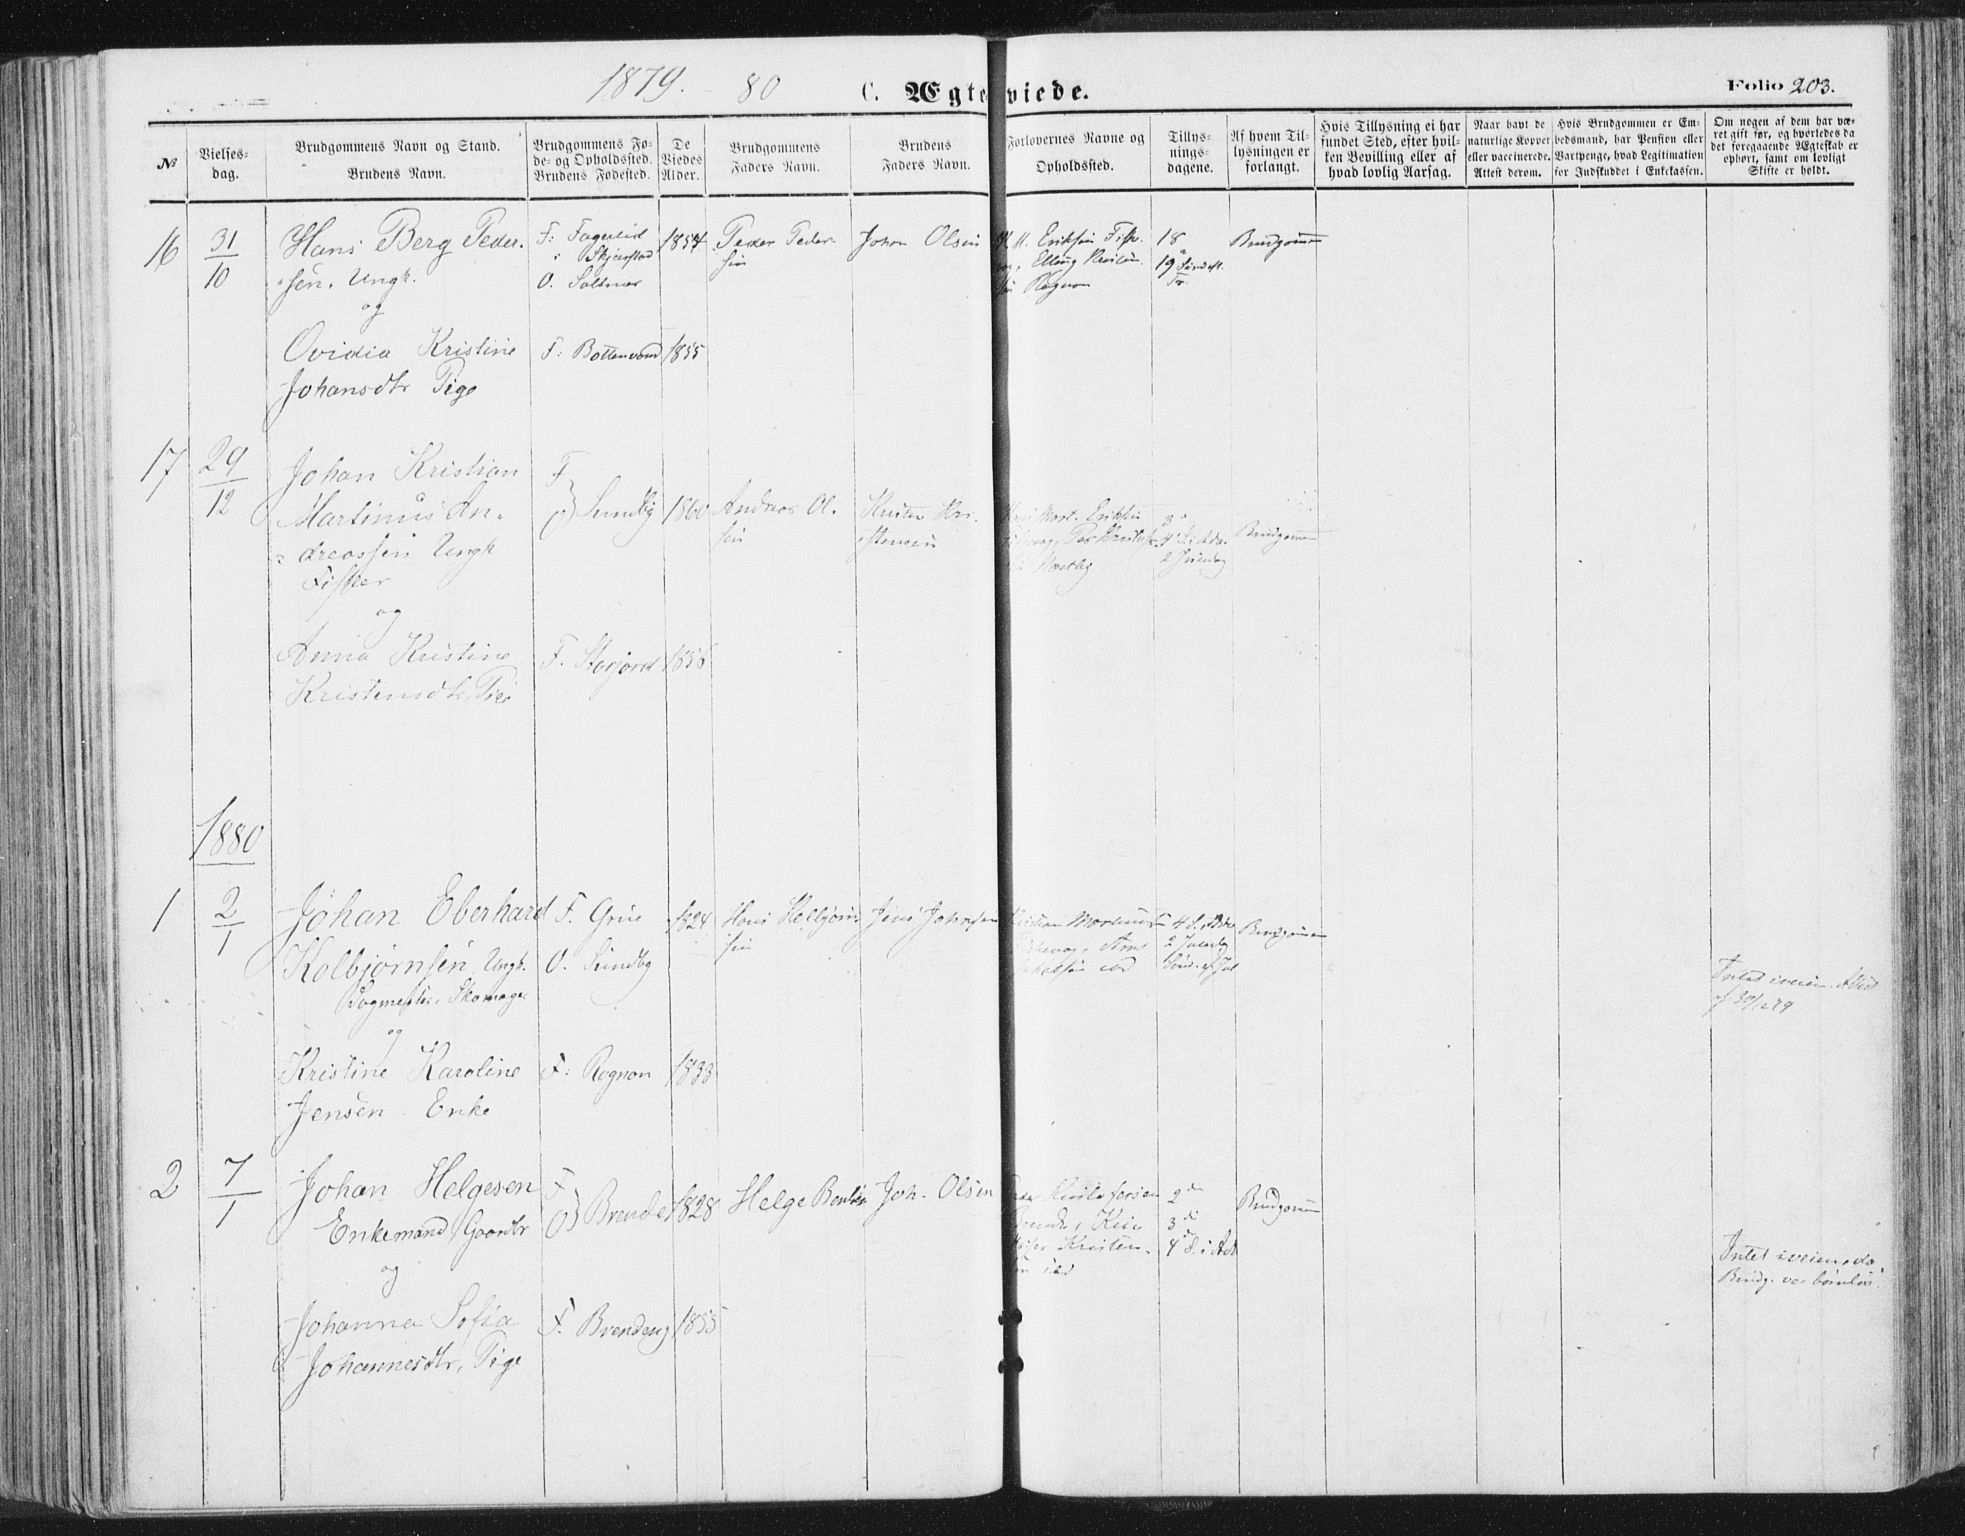 1879. 80 C. Ægteviede. Folio 203.
№
Vielses-
dag.
Brudgommens Navn og Stand.
Brudens Navn.
Brudgommens Fø-
de- og Opholdssted.
Brudens Fødested.
De
Viedes
Alder.
Brudgommens
Faders Navn.
Brudens
Faders Navn.
Forlovernes Navne og
Opholdssted.
Tillys-
nings-
dagene.
Af hvem Til-
lysningen er
forlangt.
Hvis Tillysning ei har
fundet Sted, efter hvil-
ken Bevilling eller af
hvad lovlig Aarsag.
Naar havt de
naturlige Kopper
eller vaccinerede.
Attest derom.
Hvis Brudgommen er Em-
bedsmand, har Pension eller
Vartpenge, hvad Legitimation
for Indskuddet i Enkekassen.
Om nogen af dem har væ-
ret gift før, og hvorledes da
det foregaaende Ægteskab er
ophørt, samt om lovligt
Skifte er holdt.
16
31
10
Hans Berg Peder-
sen, Ungk.
og
Ovidia Kristine
Johansdtr Pige
F: Fagerlid
i Skjerstad
O. Saltnes
F: Bottenvand
1854
1855
Peder Peder-
sen
Johan Olsen
Eriksen
Elling
Rognan
18
19
Brudgommen
17
29
12
Johan Kristian
Martinus An-
dreassen Ungk
Fisker
og
Anna Kristine
Kristensdtr Pige
F
O
Sundby
F. Storjord
1860
1856
Andreas Ol-
sen
Kristen Kri-
stensen
Mort. Eriksen
2 Juledag
Brudgommen
1880
1
2
1
Johan Eberhard
Kolbjørnsen Ungk.
Skomager
og
Kristine Karoline
Jensen Enke
F. Grue
O. Sundby
F: Rognan
1824
1833
Hans Kolbjørn-
sen
Jens Johnsen
4 S. i Adv
2 Juledag
Brudgommen
Intet i veien. Attest
af 30/12 79
2
7
1
Johan Helgesen
Enkemand Gaardbr
og
Johanna Sofia
Johannesdtr, Pige
F
O
Brende
F. Brendeng
1828
1855
Helge
Joh. Olsen
Kristofersen
Kristen-
sen ibd
2
3
4 S. i Adv
Brudgommen
Intet i veien, da
Brudg. var barnløs.